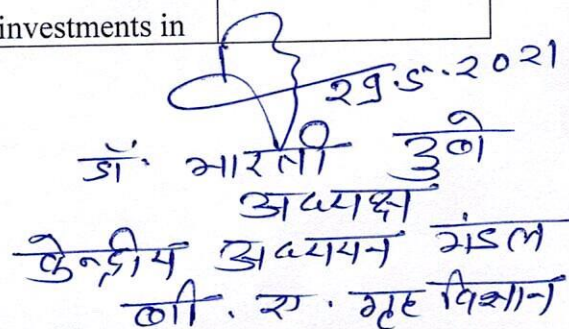 investments in
२१.५.२०२१
डॉ. भारती दुबे
अध्यक्ष
केन्द्रीय अध्ययन मंडल
बी. ए. गृह विज्ञान